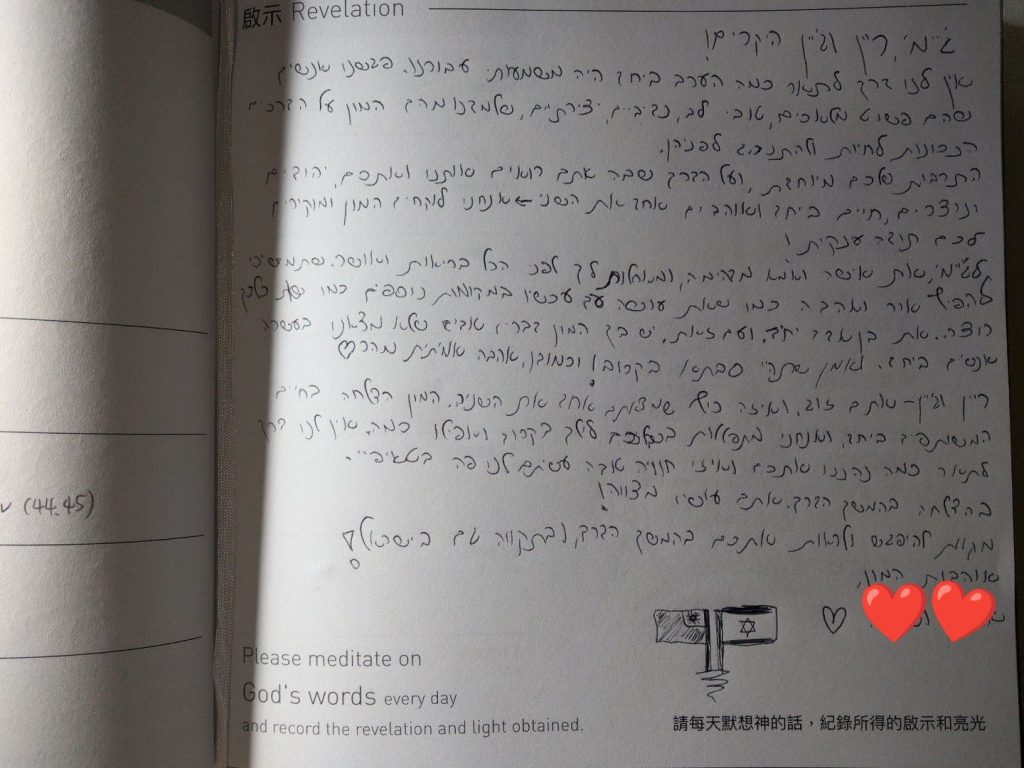 啟示 Revelation
ג׳יימי, ריין וג׳יין היקרים!
אין לנו דרך לתאר כמה הערב ביחד היה משמעותי עבורנו. פגשנו אנשים
שהם פשוט מלאכים, טובי לב, נדיבים, יצירתיים, שלמדנו מהם המון על הדרכים
הנכונות לחיות ולהתנהג לפניהן.
התרבות שלכם מיוחדת, ועל הדרך שבה אתם רואים אותנו ואתכם, יהודים
ונוצרים, חיים ביחד ואוהבים אחד את השני ← אנחנו לוקחים המון ומוקירים
לכם תודה ענקית!
לג׳יימי, את אישה ואמא מדהימה, ומאחלות לך לפני הכל בריאות ואושר. שתמשיכי
להפיץ אור ואהבה כמו שאת עושה גם עכשיו במקומות נוספים כמו שאת כל כך
רוצה.. את בן אדם יחיד, ועם זאת, יש בך המון דברים טובים שלא מצאנו בעשרה
אנשים ביחד. נאמן שתהיי סבתא בקרוב! וכמובן, אהבה אמיתית מהר ♡
ריין וג׳יין - אתם זוג, ואיזה כיף שמצאתם אחד את השניה. המון הצלחה בחיים
המשותפים ביחד, ואנחנו מתפללות בשבילכם לילד בקרוב ואפילו כמה. אין לנו דרך
לתאר כמה נהננו אתכם ואיזו חוויה טובה עשיתם לנו פה בטאיפיי..
בהצלחה בהמשך הדרך. אתם עושים מצווה!
מקוות להיפגש ולראות אתכם בהמשך הדרך, (בתקווה גם בישראל)!
אוהבות המון,
♡
v (44.45)
Please meditate on
God's words every day
and record the revelation and light obtained.
請每天默想神的話，紀錄所得的啟示和亮光